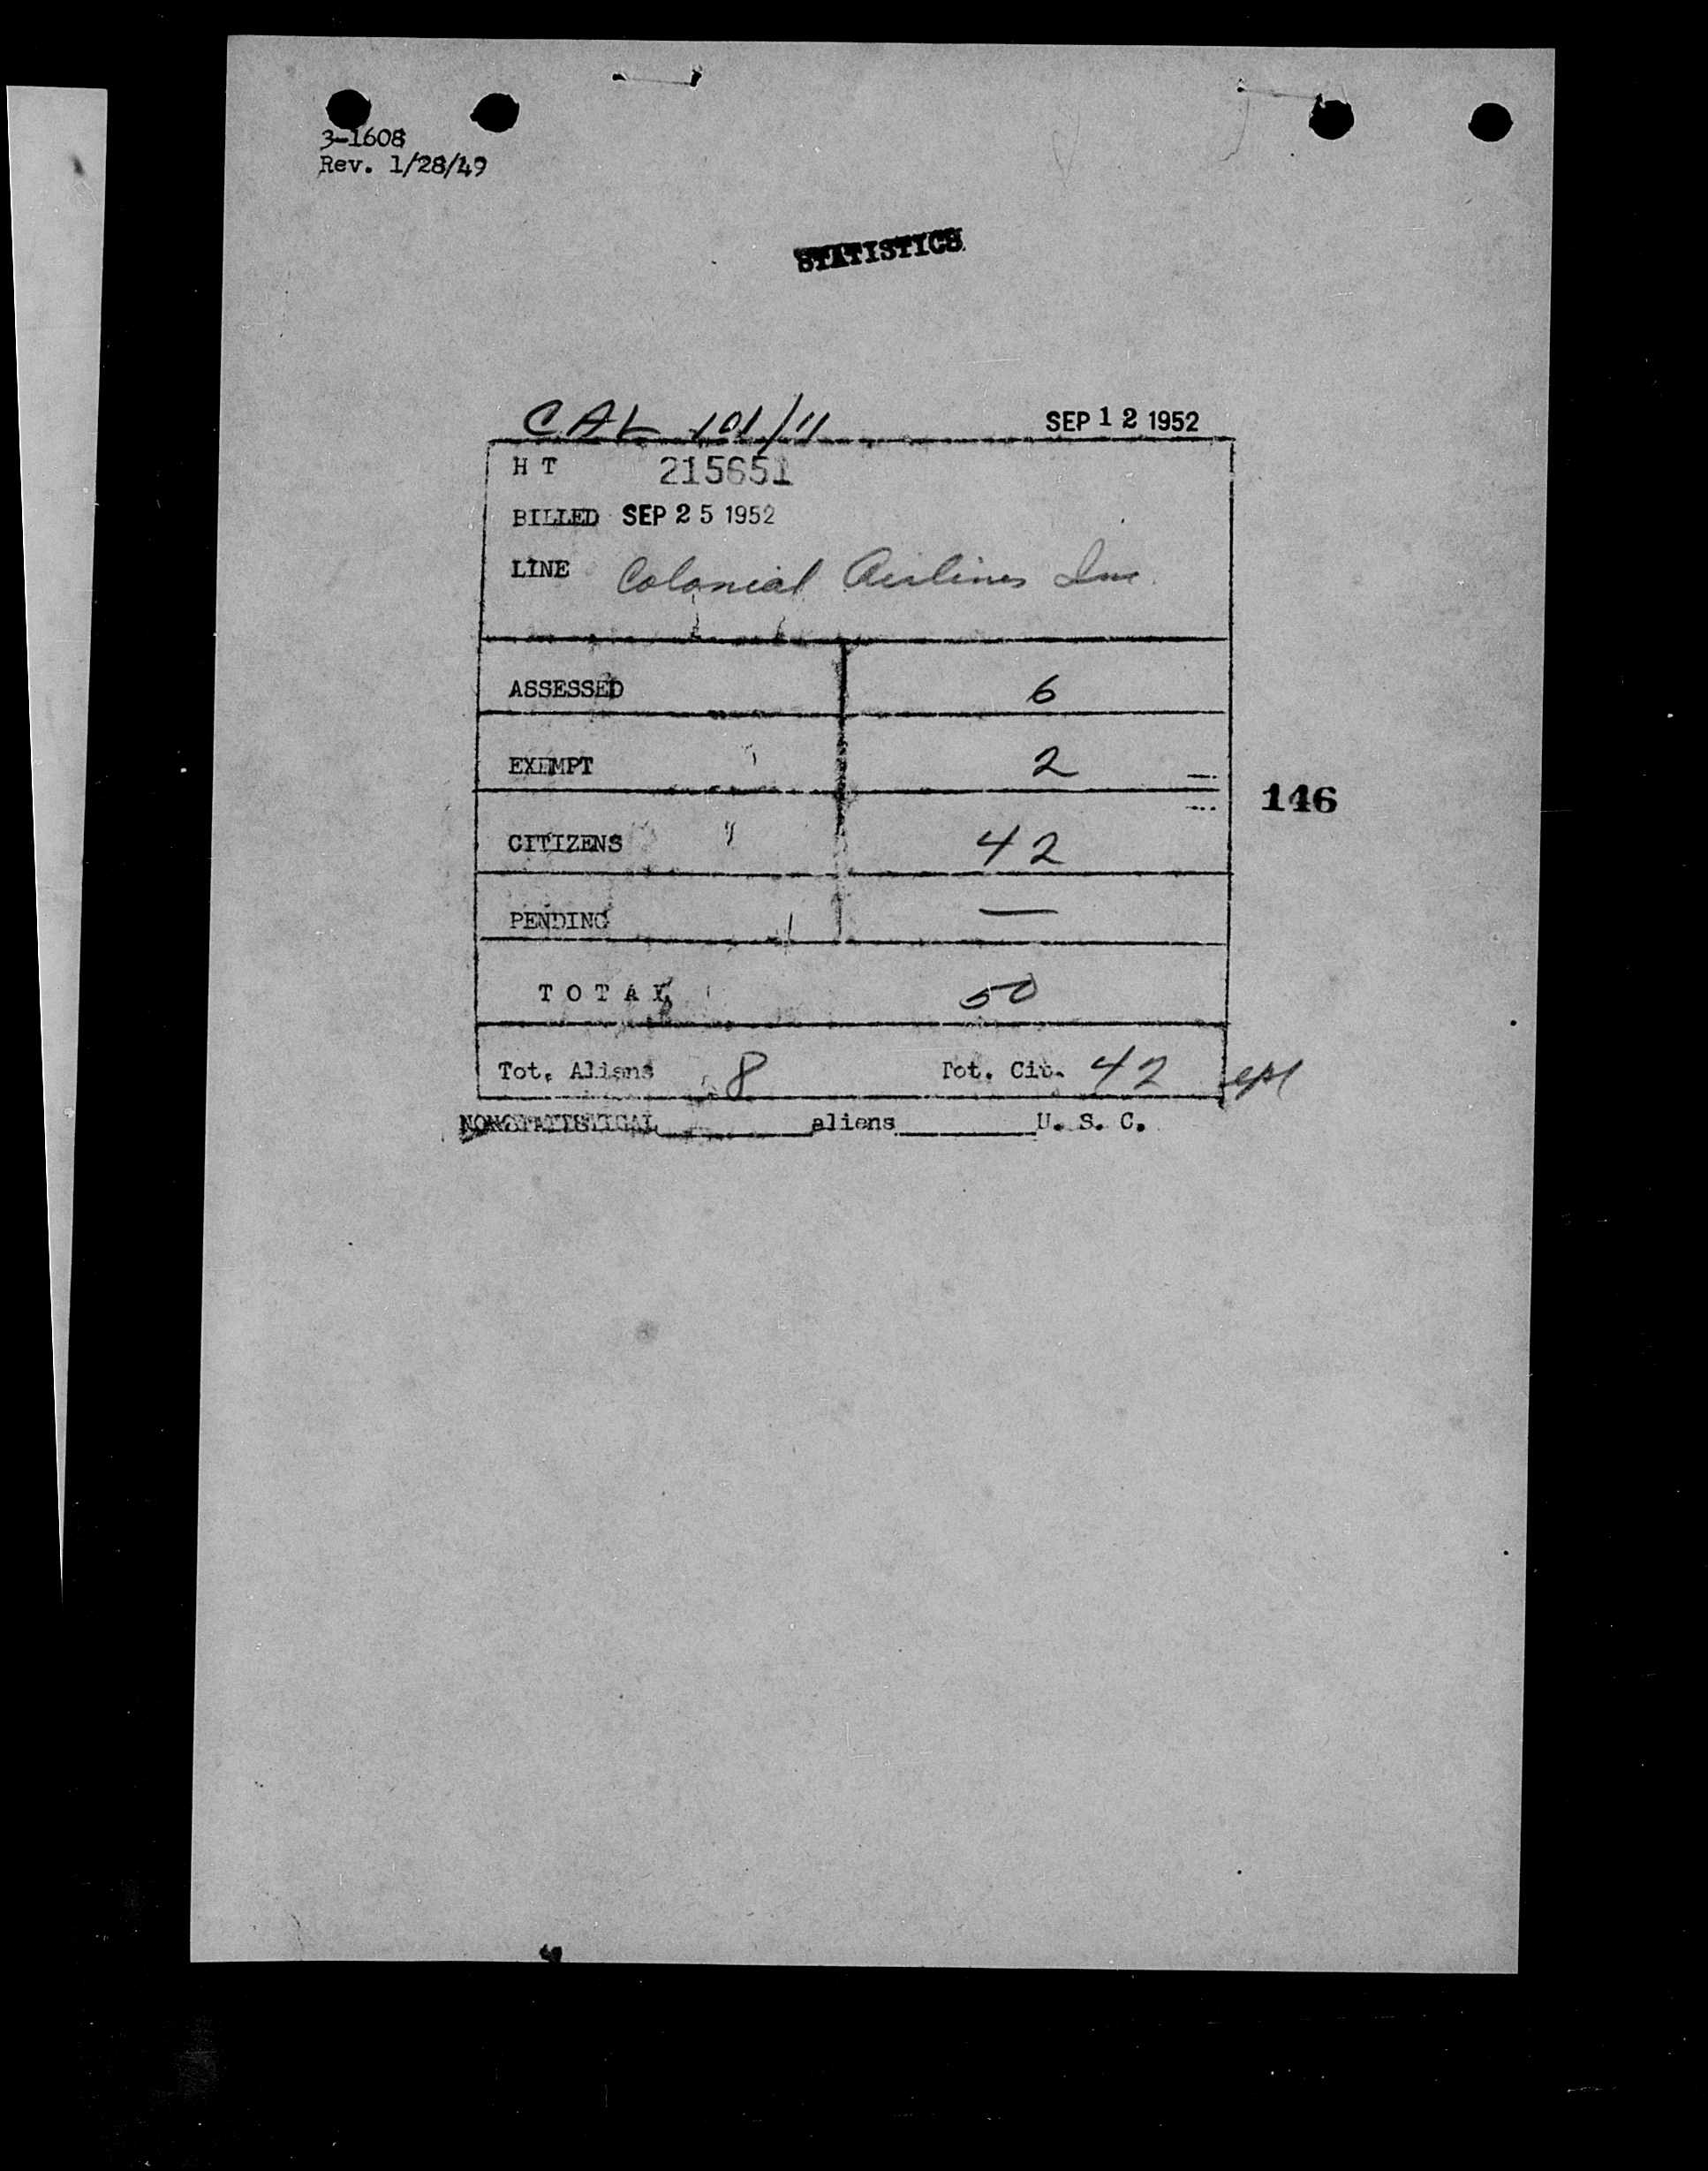 3-1608
Rev. 1/28/49
STATISTICS
CAL 101/11 SEP 12 1952
H T 215651
BILLED SEP 25 1952
LINE Colonial Airlines Inc.
ASSESSED 6
EXEMPT 2
146
CITIZENS 42
PENDING —
T O T A L 50
Tot. Aliens 8 Tot. Cit. 42
NONSTATISTICAL__________aliens__________U. S. C.